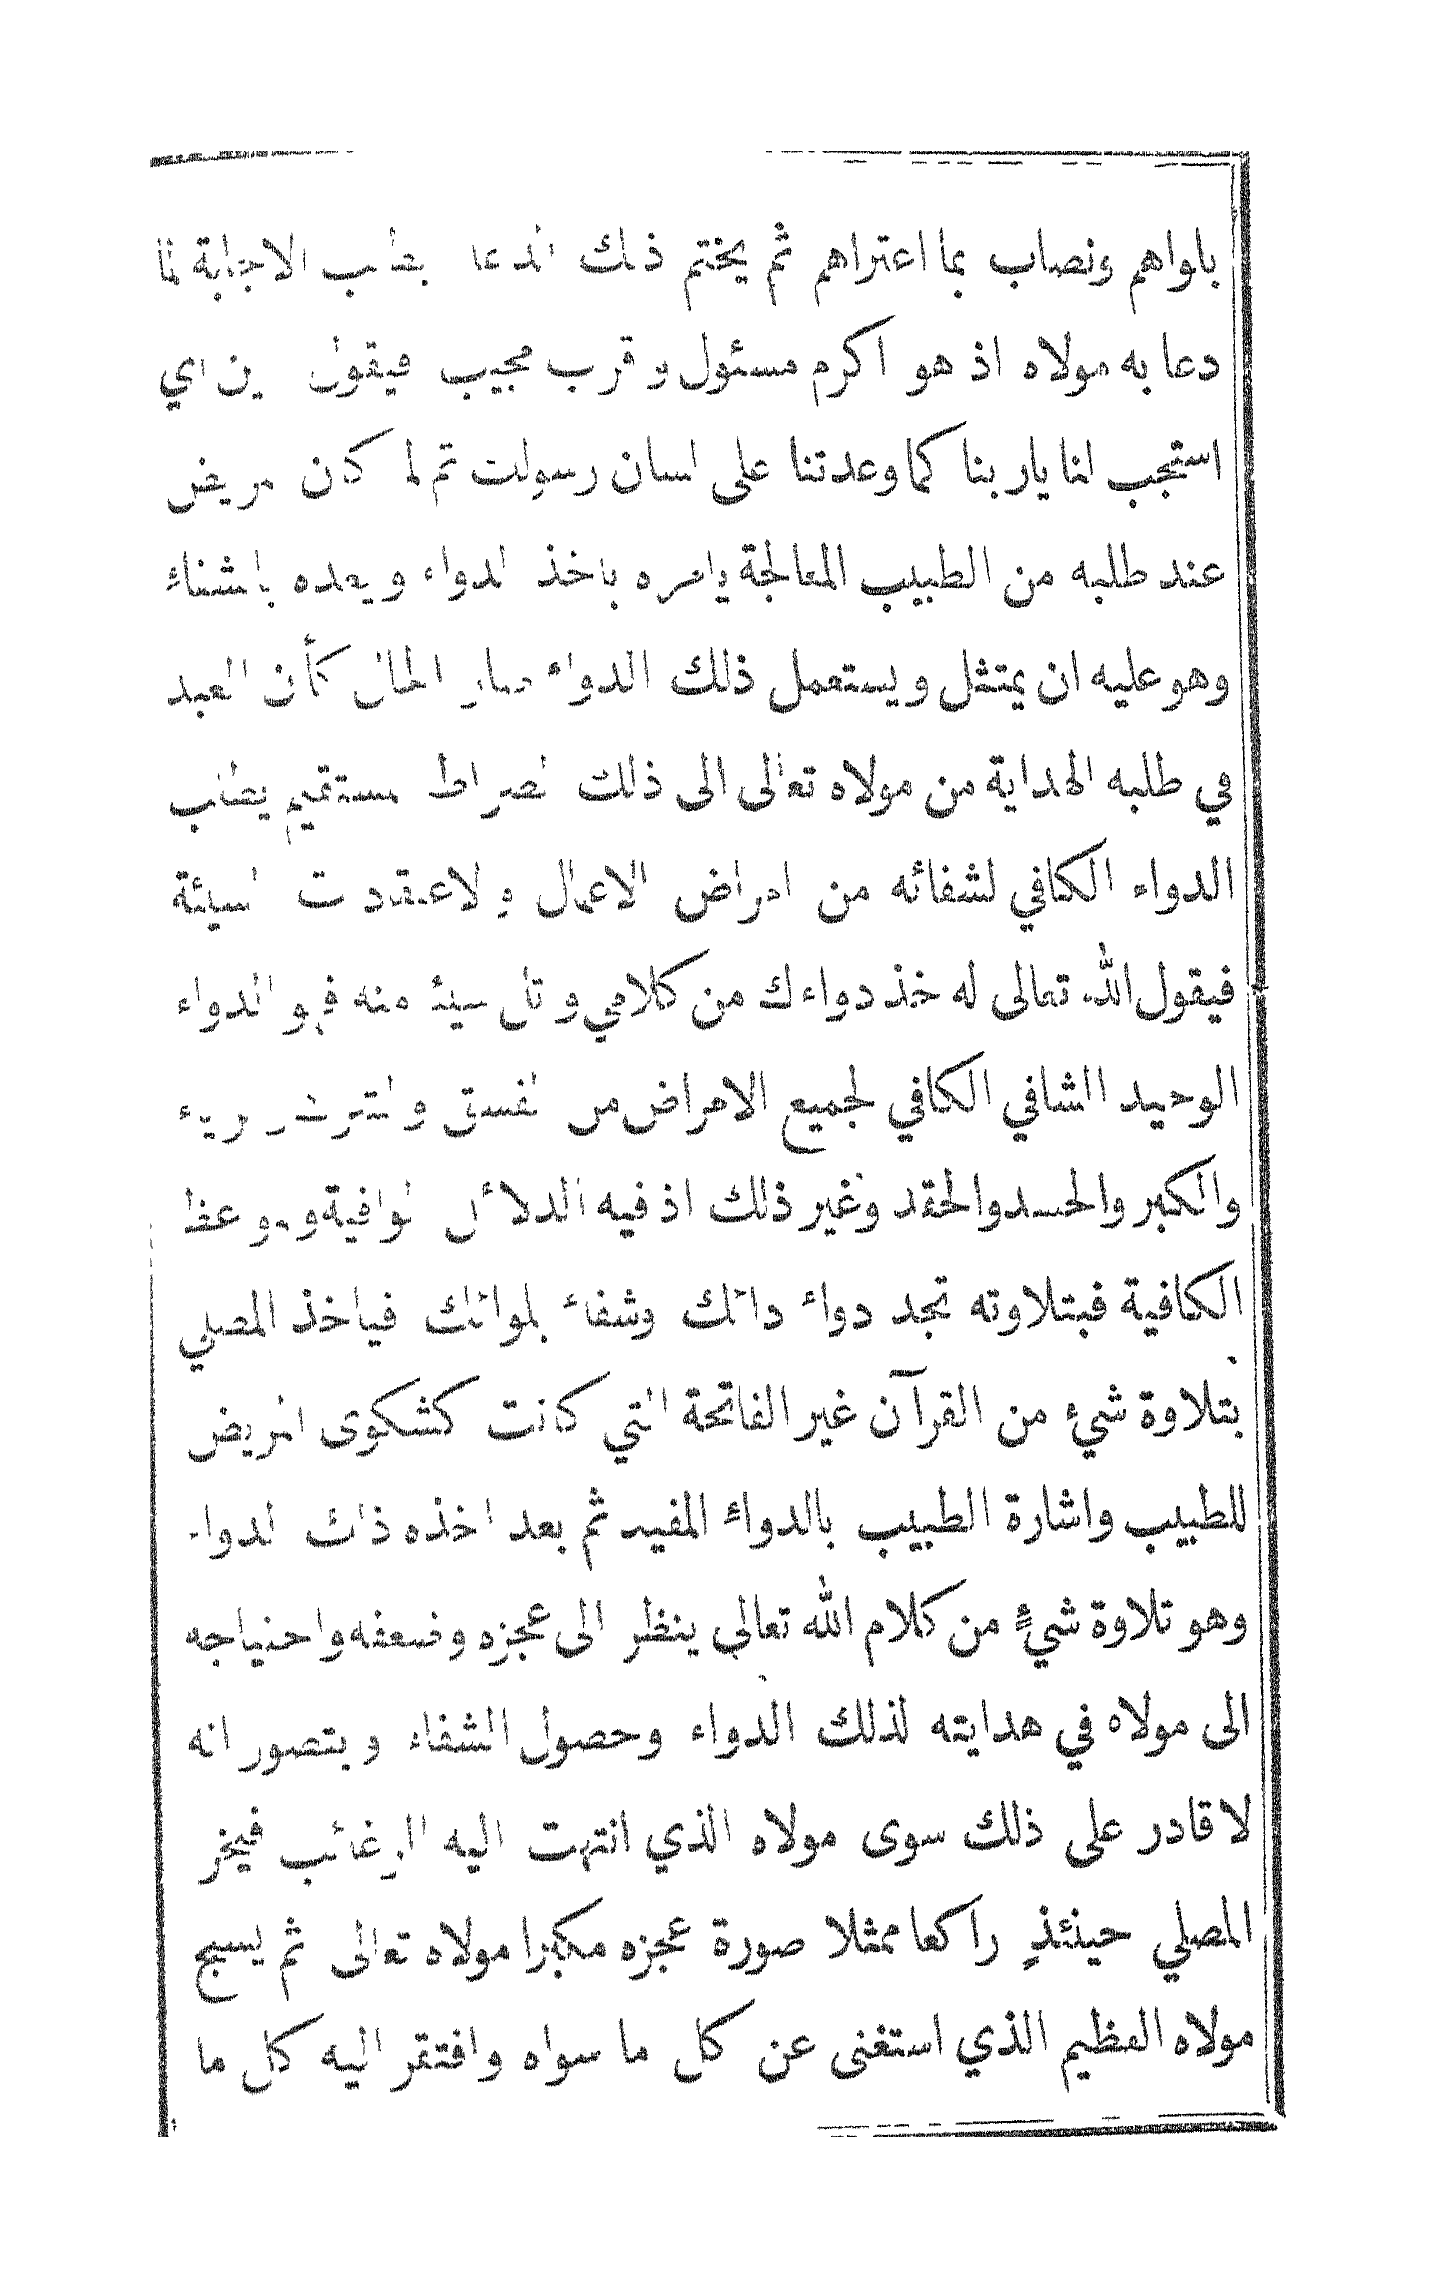 باواهم ونصاب بما اعتراهم ثم يختم ذلك الدعا بطلب الاجابة لما
دعا به مولاه اذ هو اكرم مسئول و قرب مجيب فيقول اي
استجب لنا يار بنا كما وعدتنا على لسان رسولك ثم لما كان مريض
عند طلبه من الطبيب المعالجة يامره باخذ الدواء ويعده بالشفاء
وهو عليه ان يمتثل ويستعمل ذلك الدواء الحال كأن العبد
في طلبه الهداية من مولاه تعالى الى ذلك الصراط مستقيم يطلب
الدواء الكافي لشفائه من امراض الاعمال و لاعتقادت السيئة
فيقول الله تعالى له خذ دواءك من كلامي و تل منه فهو الدواء
الوحيد الشافي الكافي لجميع الامراض من الفسق و
والكبر والحسد والحقد وغير ذلك اذ فيه الدلائل لوافية و وعظ
الكافية فبتلاوته تجد دواء دائك وشفاء فياخذ المصلي
بتلاوة شيء من القرآن غير الفاتحة التي كانت كشكوى المريض
للطبيب واشارة الطبيب بالدواء المفيد ثم بعد اخذه ذلك الدواء
وهو تلاوة شيءٍ من كلام الله تعالي ينظر الى عجزه وضعفه واحنياجه
الى مولاه في هدايته لذلك الدواء وحصول الشفاء ويتصور انه
لا قادر على ذلك سوى مولاه الذي انتهت اليه الرغائب فيخر
المصلي حينئذٍ راكعا ممثلا صورة عجزه مكبرا مولاه تعالى ثم يسبح
مولاه العظيم الذي استغنى عن كل ما سواه وافتقر اليه كل ما